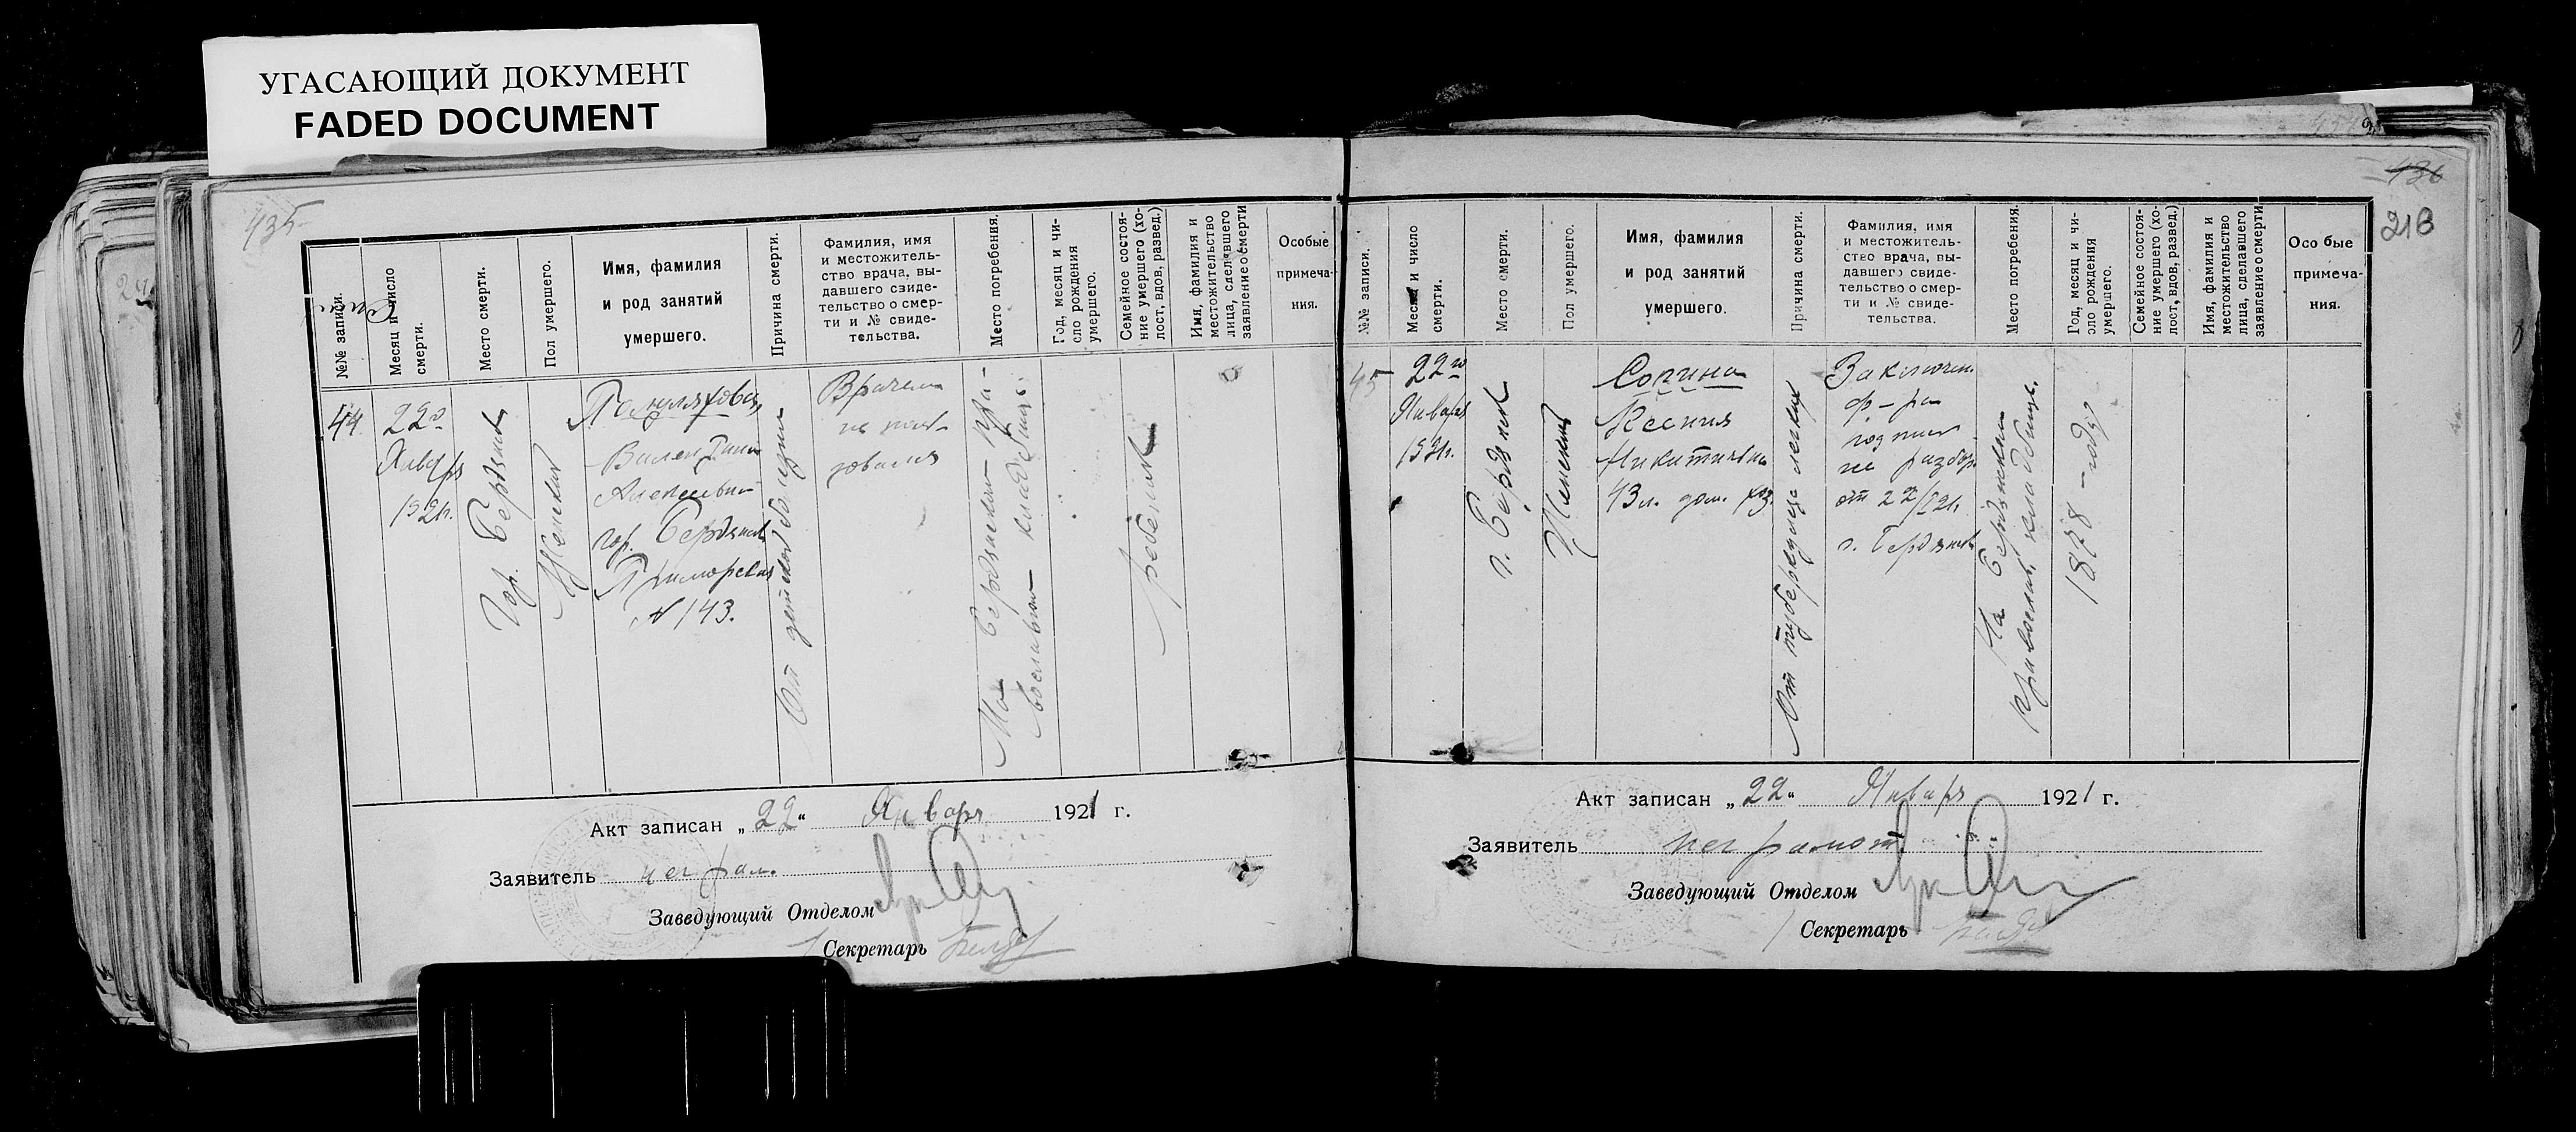 УГАСАЮЩИЙ ДОКУМЕНТ
FADED DOCUMENT
435
№№ записи.
Месяц и число
смерти.
Место смерти.
Пол умершего.
Имя, фамилия
и род занятий
умершего.
Причина смерти.
Фамилия, имя
и местожитель-
ство врача, вы-
давшего свиде-
тельство о смер-
ти и № свиде-
тельства.
Место погребения.
Год, месяц и чи-
сло рождения
умершего.
Семейное состоя-
ние умершего (хо-
лост, вдов, развед.)
Имя, фамилия и
местожительство
лица, сделавшего
заявление о смерти
Особые
примеча-
ния.
44
22го
Января
1921г.
Гор. Бердянск
Женский
Валентина
Алексеевна
гор. Бердянск
Приморская
№ 143.
От детской болезни
Врачем
не поль-
зовался
На Бердянском пра-
вославном кладбище
ребенок
Акт записан „22“ Января 1921 г.
Заявитель неграм.
Заведующий Отделом
Секретарь
436
218
№№ записи.
Месяц и число
смерти.
Место смерти.
Пол умершего.
Имя, фамилия
и род занятий
умершего.
Причина смерти.
Фамилия, имя
и местожитель-
ство врача, вы-
давшего свиде-
тельство о смер-
ти и № свиде-
тельства.
Место погребения.
Год, месяц и чи-
сло рождения
умершего.
Семейное состоя-
ние умершего (хо-
лост, вдов, развед.)
Имя, фамилия и
местожительство
лица, сделавшего
заявление о смерти
Особые
примеча-
ния.
45
22го
Января
1921г.
г. Бердянск
Женский
Сопина
Ксения
Никитична
43л. дом. хоз.
От туберкулеза легких
Заключен.
д-ра
подпись
не разбор.
от 22/I 21г.
г. Бердянск
На Бердянском
православн. кладбище.
1878 - году
Акт записан „22“ Января 1921 г.
Заявитель неграмот.
Заведующий Отделом
Секретарь